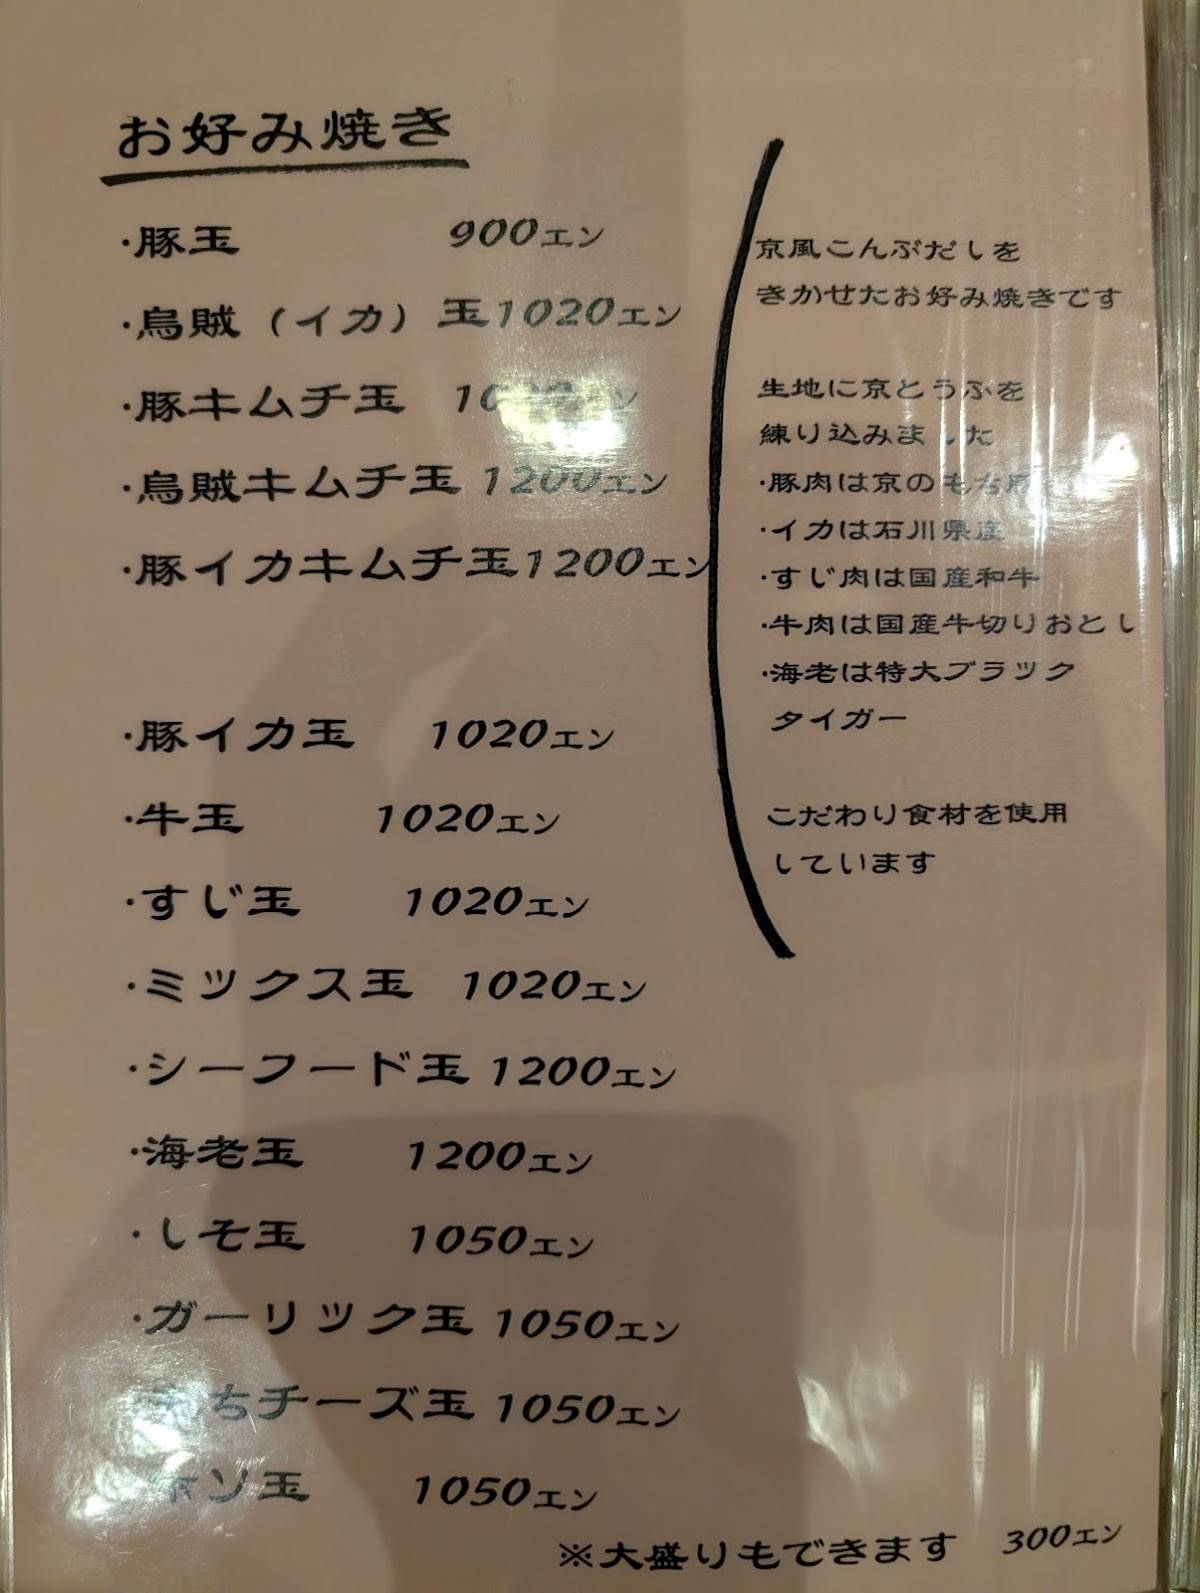 お好み焼き
・豚玉 900エン
・烏賊(イカ)玉1020エン
・豚キムチ玉
・烏賊キムチ玉 1200エン
・豚イカキムチ玉1200エン
・豚イカ玉 1020エン
・牛玉 1020エン
・すじ玉 1020エン
・ミックス玉 1020エン
・シーフード玉 1200エン
・海老玉 1200エン
・しそ玉 1050エン
・ガーリック玉 1050エン
もちチーズ玉 1050エン
ホソ玉 1050エン
※大盛りもできます 300エン
京風こんぶだしを
きかせたお好み焼きです
生地に京とうふを
練り込みました
・豚肉は京のもち豚
・イカは石川県産
・すじ肉は国産和牛
・牛肉は国産牛切りおとし
・海老は特大ブラック
タイガー
こだわり食材を使用
しています